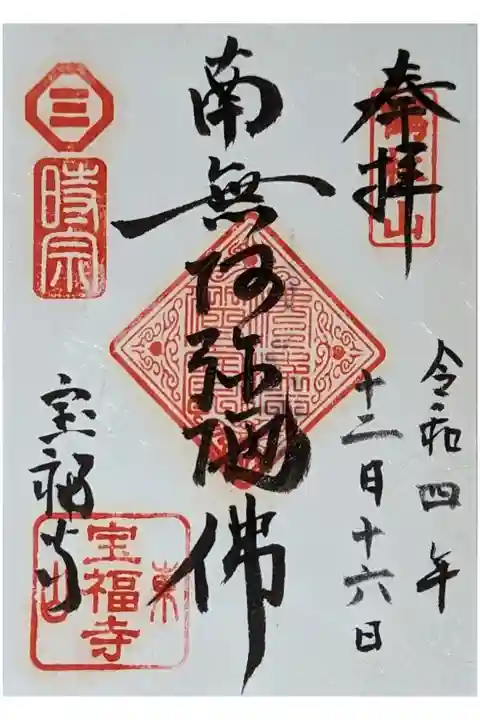 奉拝
令和四年
十二月十六日
南無阿弥陀佛
三
時宗
宝福寺
宝福寺